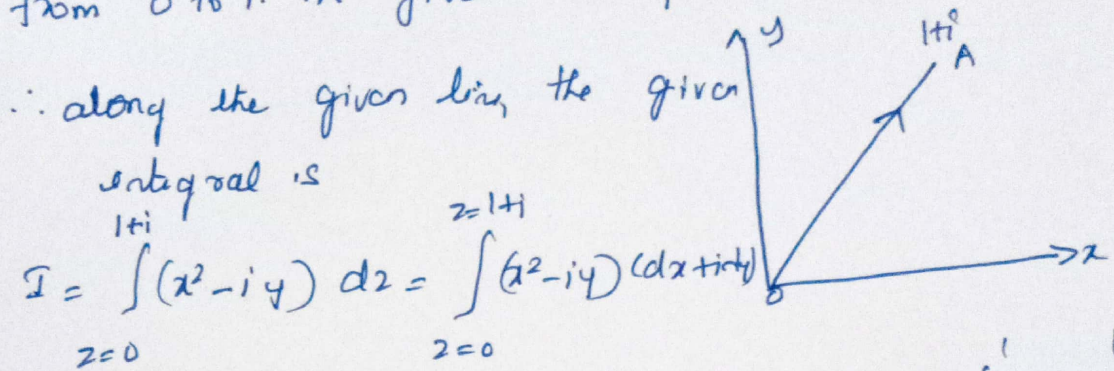 from 0 to
y
1+i
A
∴ along the given line, the given
integral is
I = ∫_{z=0}^{1+i} (x² - iy) dz = ∫_{z=0}^{z=1+i} (x² - iy) (dx + idy)
0
x